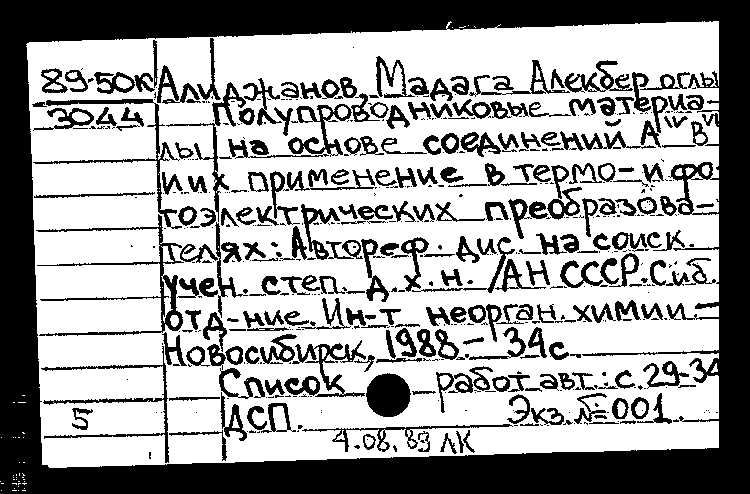 89-50к Алиджанов, Мадага Алекбер оглы
3044 Полупроводниковые материа-
лы на основе соединений А^IV В^VI
и их применение в термо- и фо-
тоэлектрических преобразова-
телях: Автореф. дис. на соиск.
учен. степ. д. х. н. /АН СССР. Сиб.
отд-ние. Ин-т неорган. химии. —
Новосибирск, 1988. — 34с.
Список работ авт.: с. 29-34
5 ДСП. Экз. №001.
4.08.89 ЛК